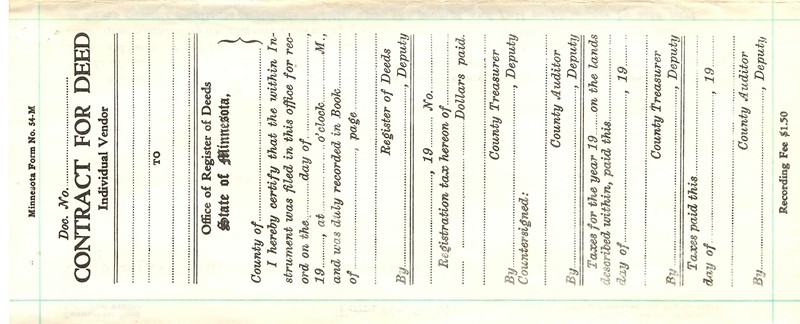 Minnesota Form No. 54-M
Doc. No.
CONTRACT FOR DEED
Individual Vendor
TO
Office of Register of Deeds
State of Minnesota,
County of
I hereby certify that the within In-
strument was filed in this office for rec-
ord on the........day of................,
19......, at............o'clock......M.,
and was duly recorded in Book
of................, page................
Register of Deeds
By................, Deputy
................, 19...... No.
Registration tax hereon of
................Dollars paid.
County Treasurer
By................, Deputy
Countersigned:
County Auditor
By................, Deputy
Taxes for the year 19......on the lands
described within, paid this
day of................, 19......
County Treasurer
By................, Deputy
Taxes paid this
day of................, 19......
County Auditor
By................, Deputy
Recording Fee $1.50